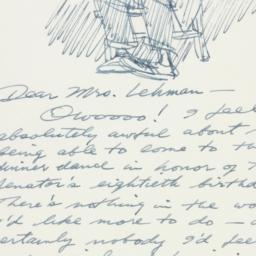 Dear Mrs. Lehman—
Owoooo! I feel
absolutely awful about
being able to come to the
dinner dance in honor of
Senator's eightieth birthd
There's nothing in the wo
I'd like more to do — a
certainly nobody I'd feel